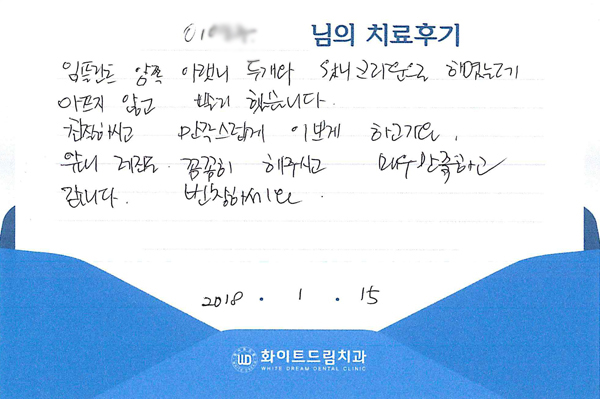 이 님의 치료후기
임플란트 양쪽 아랫니 두개와 윗니 크라운을 했었는데
아프지 않고 빨리 했습니다.
친절하시고 만족스럽게 이쁘게 하고가요.
앞니 레진도 꼼꼼히 해주시고 매우 만족하고
갑니다. 번창하세요.
2018 . 1 . 15
WD 화이트드림치과
WHITE DREAM DENTAL CLINIC